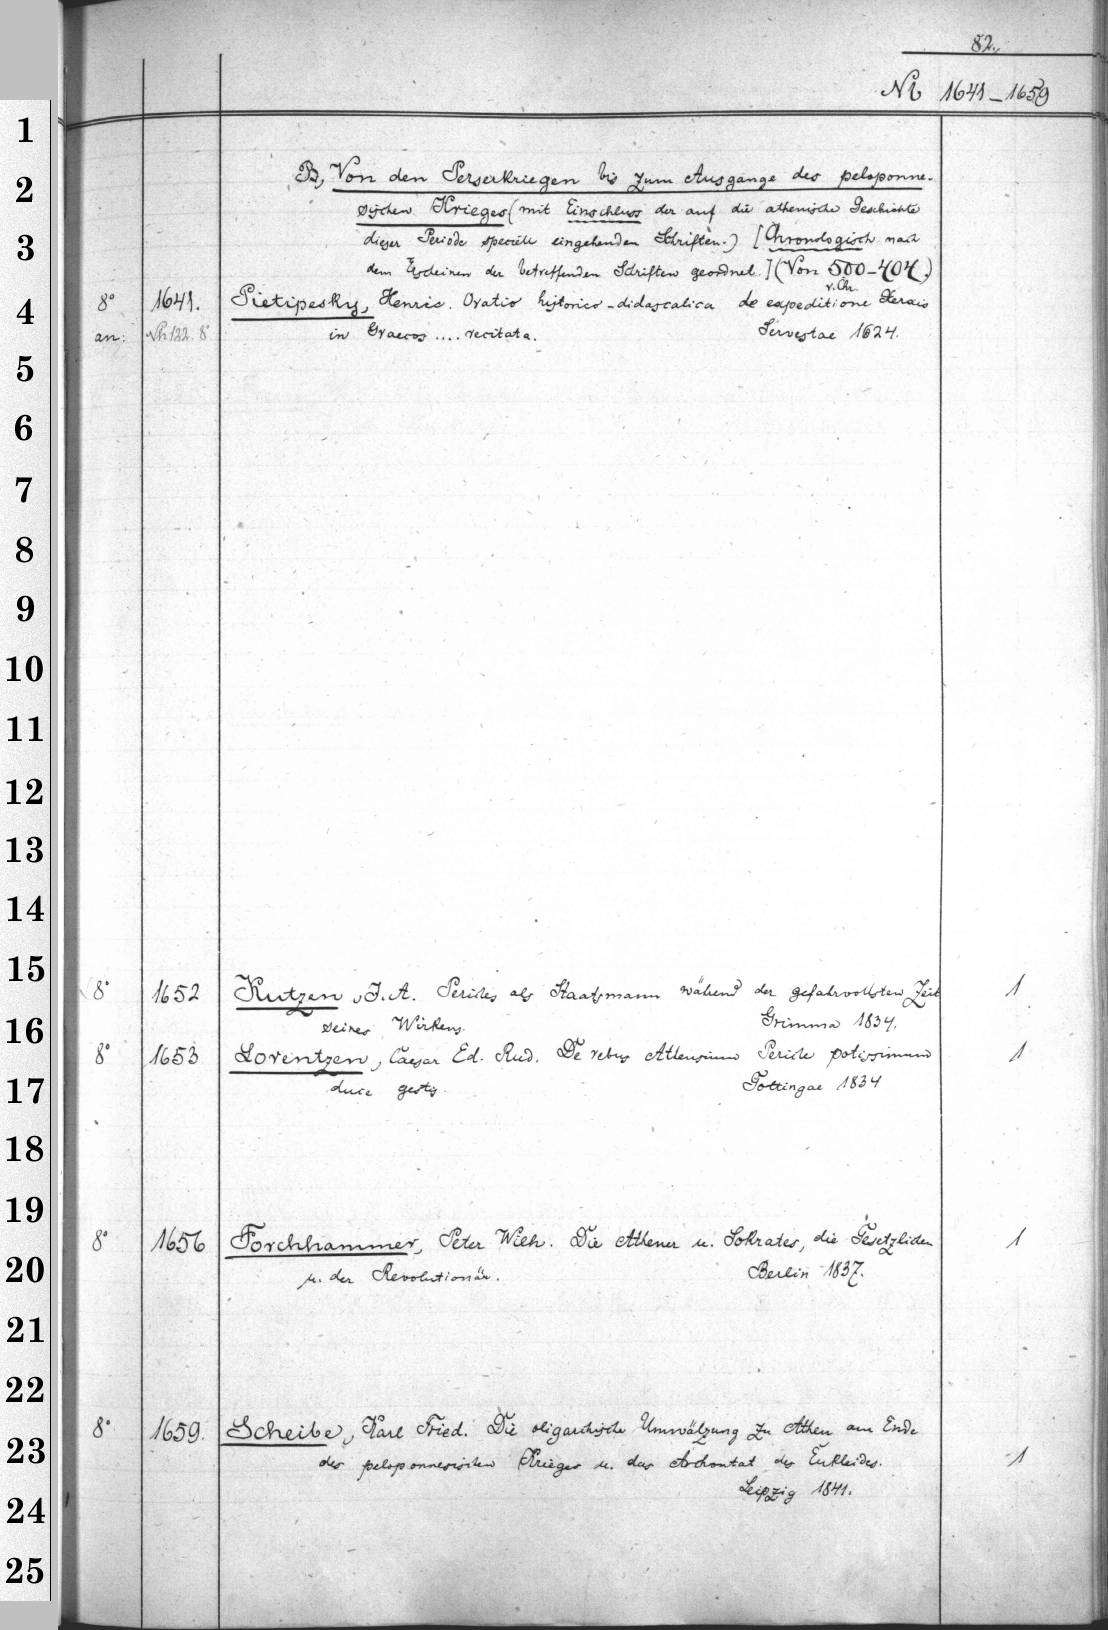 82.
Nr 1641–1659
B, Von den Perserkriegen bis zum Ausgange des peloponne-
sischen Krieges (mit Einschluss der auf die athenische Geschichte
dieser Periode speciell eingehenden Schriften.) [Chronologisch nach
dem Erscheinen der betreffenden Schriften geordnet.] (Von 500–404.)
v. Ch.
8° 1641. Pietipesky, Henric. Oratio historico-didascalica de expeditione Xerxis
an: Nh 122. 8° in Graecos .... recitata. Servestae 1624.
8° 1652 Kutzen, J. A. Pericles als Staatsmann während der gefahrvollsten Zeit 1
seines Wirkens. Grimma 1834.
8° 1653 Lorentzen, Caesar Ed. Rud. De rebus Atheniensium Pericle potissimum 1
duce gestis. Gottingae 1834
8° 1656 Forchhammer, Peter Wilh. Die Athener u. Sokrates, die Gesetzlichen 1
u. der Revolutionär. Berlin 1837.
8° 1659. Scheibe, Karl Fried. Die oligarchische Umwälzung zu Athen am Ende
des peloponnesischen Krieges u. das Archontat des Eukleides. 1
Leipzig 1841.
1
2
3
4
5
6
7
8
9
10
11
12
13
14
15
16
17
18
19
20
21
22
23
24
25